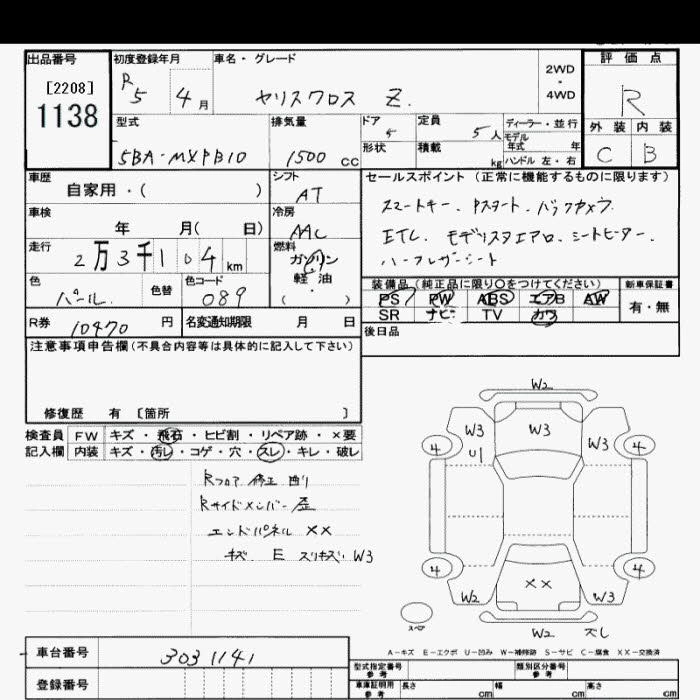 出品番号 初度登録年月 車名・グレード 評価点
[2208] R5 4月 ヤリスクロス Z. 2WD・4WD R
1138
型式 排気量 ドア 定員 ディーラー・並行 外装 内装
5BA-MXPB10 1500 cc 5 5人 モデル年式 年 C B
形状 積載 kg ハンドル 左・右
車歴 シフト セールスポイント (正常に機能するものに限ります)
自家用・( ) AT スマートキー. Pスタート. バックカメラ.
車検 冷房 ETC. モデリスタエアロ. シートヒーター.
年 月( 日) AAC ハーフレザーシート
走行 燃料
2万3千104km ガソリン
色 色替 色コード 軽油
パール. 089 ・( )
装備品 (純正品に限り○をつけてください) 新車保証書
PS PW ABS エアB AW 有・無
SR ナビ TV カワ
R券 10470 円 名変通知期限 月 日 後日品
注意事項申告欄 (不具合内容等は具体的に記入して下さい)
修復歴 有 [箇所 ]
検査員記入欄 FW キズ・飛石・ヒビ割・リペア跡・×要
内装 キズ・汚レ・コゲ・穴・スレ・キレ・破レ
Rフロア 修正 凹り
Rサイドメンバー 歪
エンドパネル ××
キズ E スリキズ. W3
W2
W3 W3 W3
U1
4 4
4 4
W2 ×× W3
W2 ズレ
スペア
A-キズ E-エクボ U-凹み W-補修跡 S-サビ C-腐食 XX-交換済
車台番号 3031141
登録番号
型式指定番号 参考 類別区分番号 参考
車庫証明用 参考 長さ cm 幅 cm 高さ cm